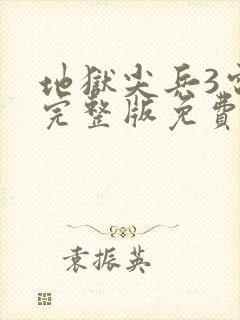 地獄尖兵3
完整版免費
袁振英